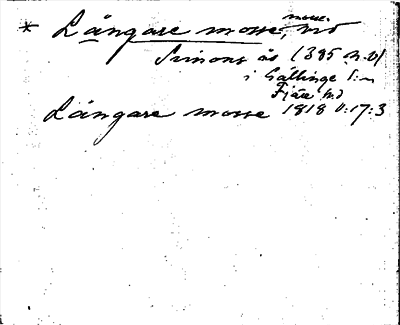 * Långare mosse, mosse. nv
Simons ås (395 n.v)
i Gällinge sn
Fjäre hd
Långare mosse 1818 v:17:3